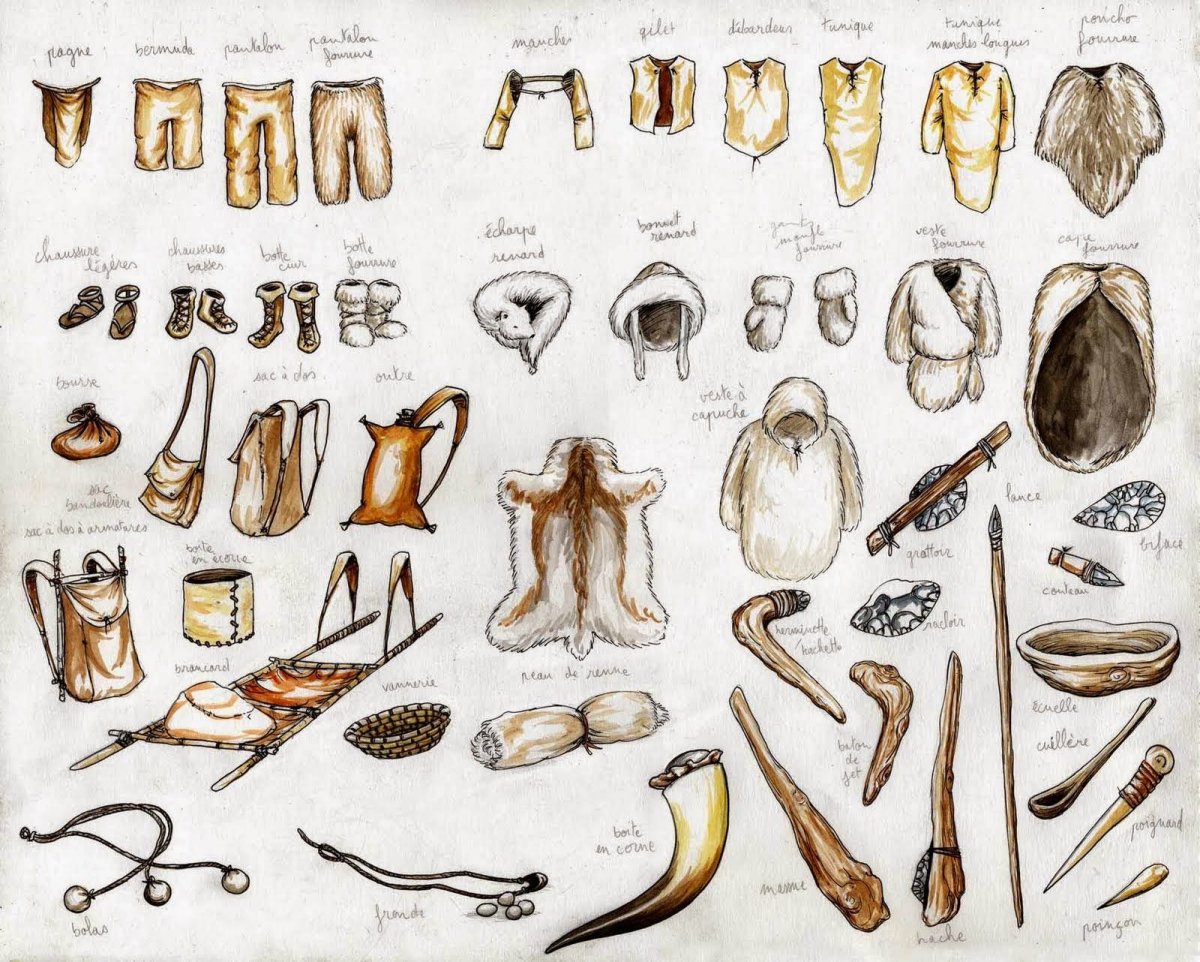 pagne
bermuda
pantalon
pantalon
fourrure
manches
gilet
débardeur
tunique
tunique
manches longues
poncho
fourrure
chaussure
légères
chaussures
basses
botte
cuir
botte
fourrure
écharpe
renard
bonnet
renard
gants
moufle
fourrure
veste
fourrure
cape
fourrure
bourse
sac
bandoulière
sac à dos
outre
veste à
capuche
sac à dos à armatures
boite
en écorce
brancard
vannerie
peau de renne
grattoir
lance
biface
couteau
herminette
hachette
racloir
écuelle
baton
de
jet
cuillère
poignard
bolas
fronde
boite
en corne
massue
hache
poinçon